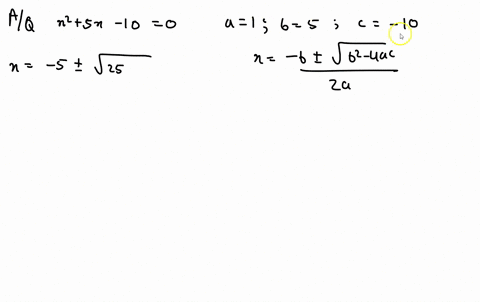 A/Q x²+5x-10=0 a=1; b=5 ; c=-10
x = -5 ± √25
x = -b ± √b²-4ac
2a